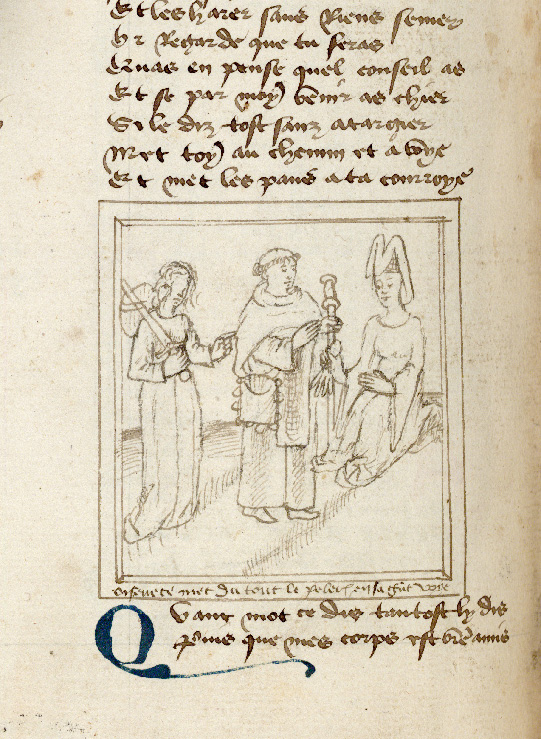 Et les harer sans riens semer
Or regarde que tu feras
Quas en pense quel conseil as
Et se par moy venir as chier
Si le diz tost sanz atargier
Met toy au chemin et a voye
Et met les panes a ta courroye
met du tout le en sa
Quant mot ce dis tantost ly dis
que mes corps est